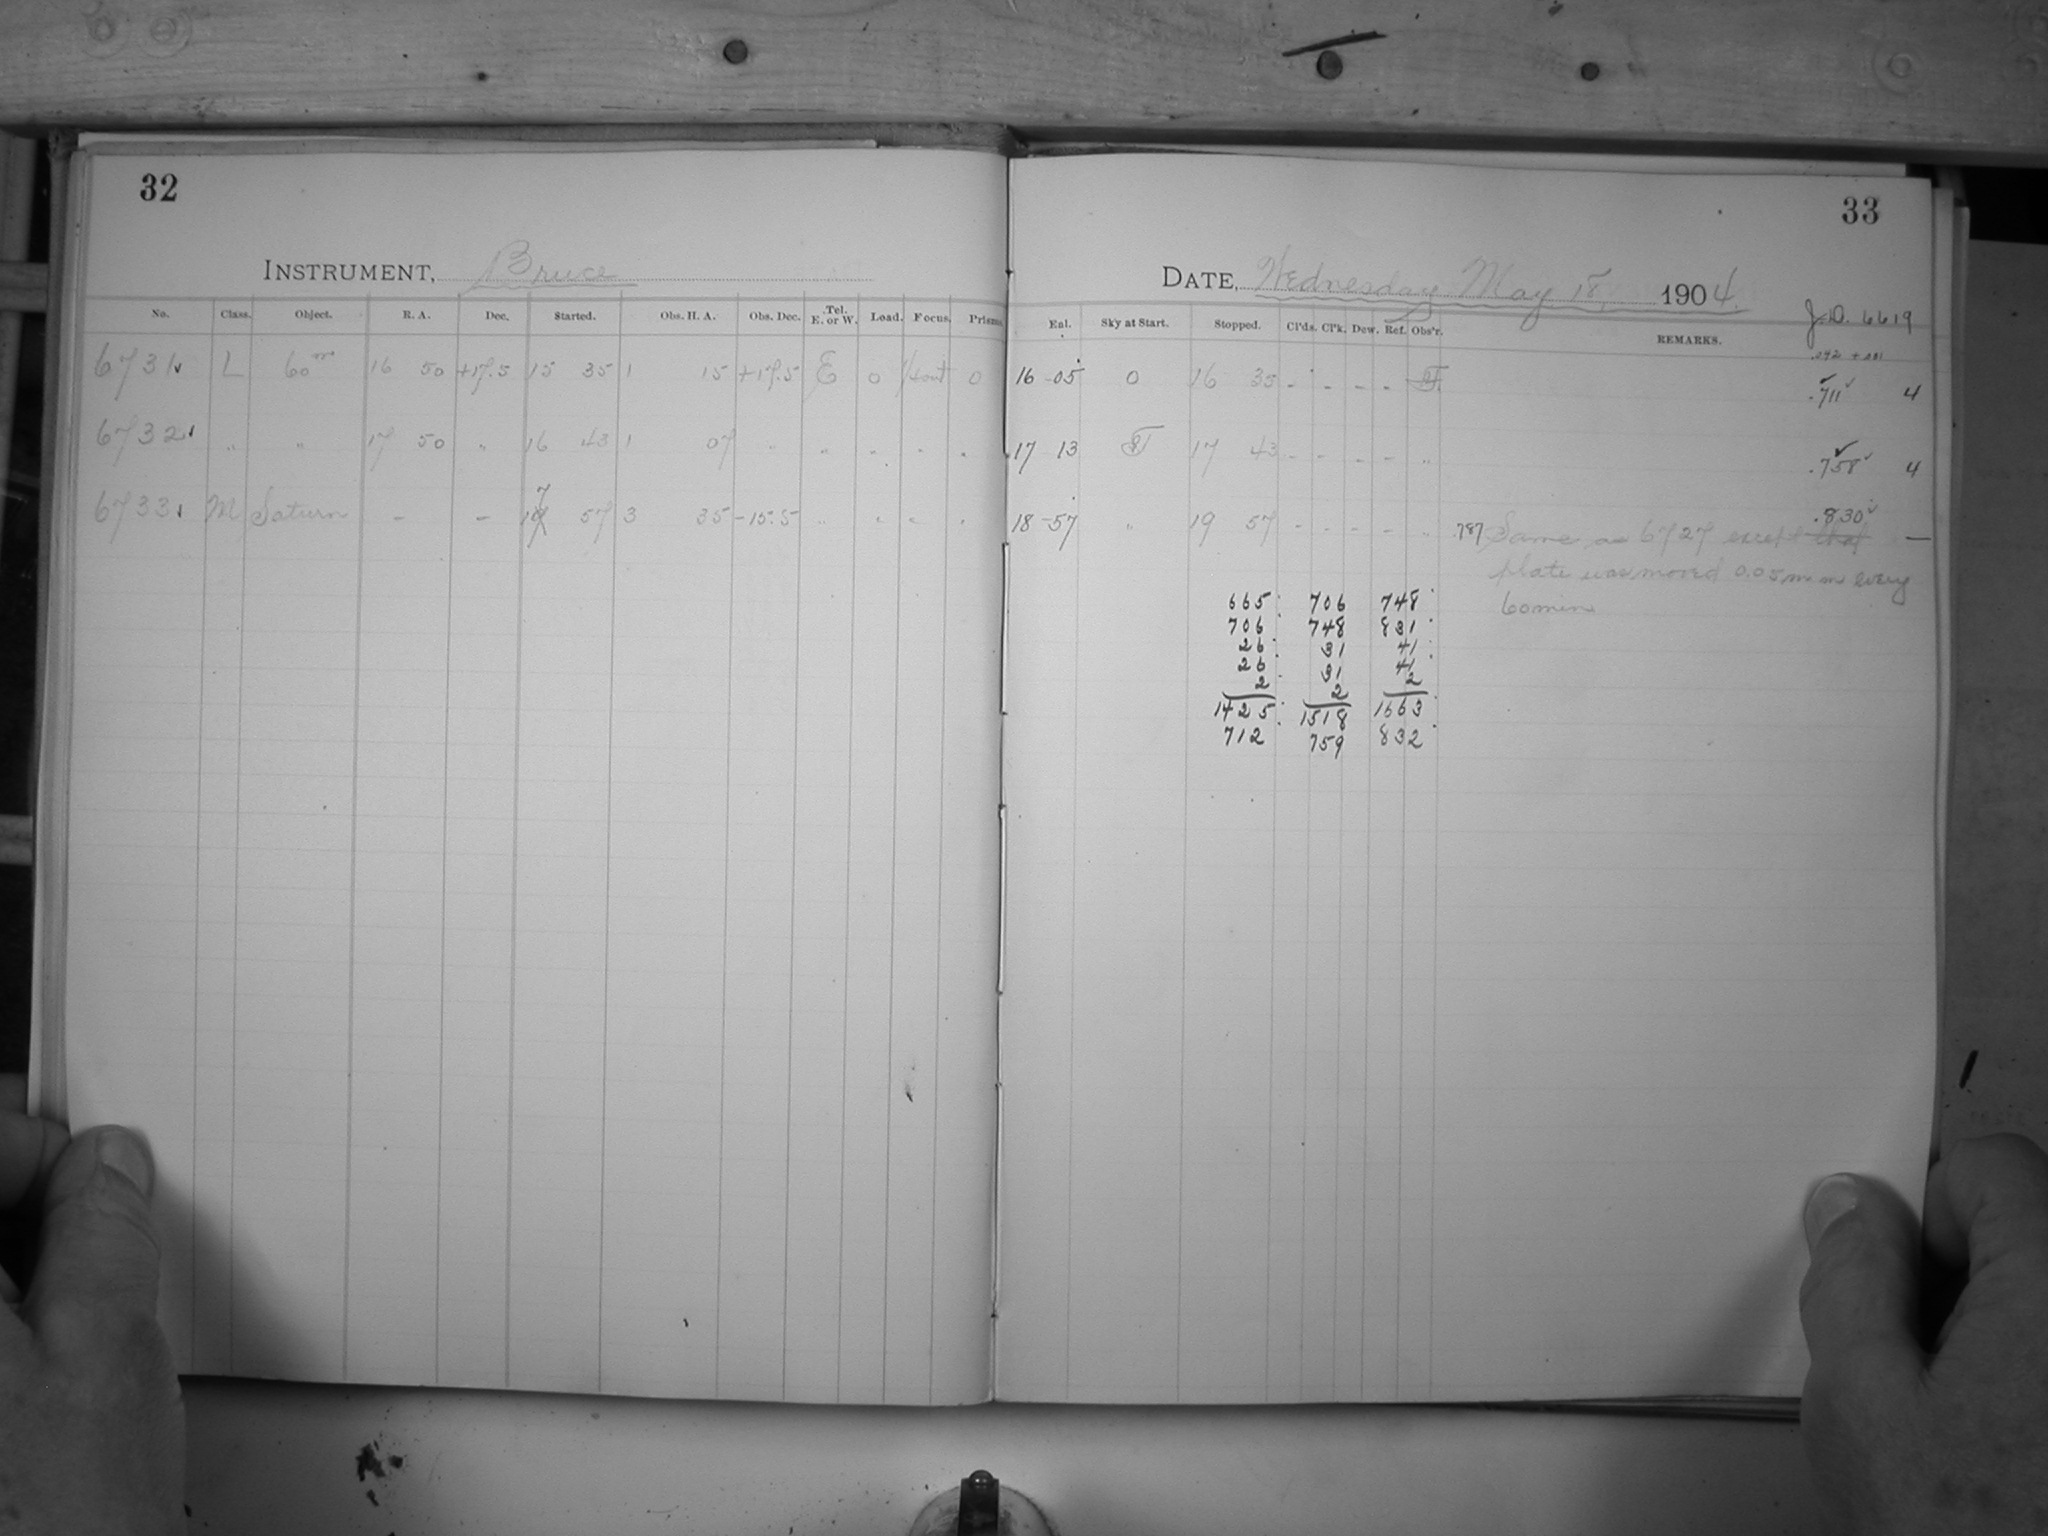 32
INSTRUMENT, Bruce
No. Class. Object. R. A. Dec. Started. Obs. H. A. Obs. Dec. Tel. E. or W. Load. Focus. Prisms.
6731 L 60m 16 50 +17.5 15 35 1 15 +17.5 E 0 out 0
6732 " " 17 50 " 16 43 1 07 " " " " "
6733 M Saturn - - 17 57 3 35 -15.5 " " " "
33
DATE, Wednesday May 18, 1904.
J.D. 6619
Eal. Sky at Start. Stopped. Cl'ds. Cl'k. Dew. Ref. Obs'r. REMARKS.
16-05 0 16 35 - - - - .711 4
17 13 17 43 - - - - " .758 4
.830
18-57 " 19 57 - - - - " .787 Same as 6727 except that —
plate was moved 0.05 mm every
60 min
665 706 748
706 748 831
26 31 41
26 31 41
2 2 2
1425 1518 1663
712 759 832